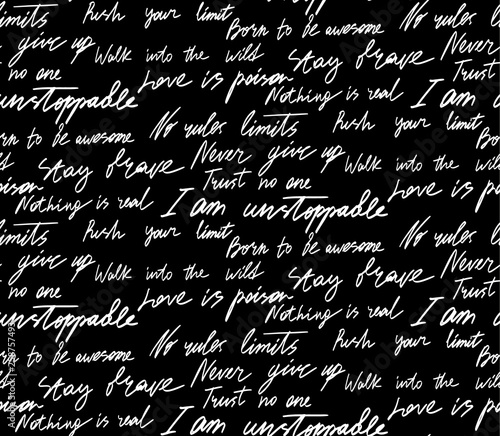 limits Rush your limit Born to be awesome No rules
give up Walk into the wild Stay brave Never
no one Love is poison Nothing is real Trust
unstoppable I am
Born to be awesome No rules limits Rush your limit Born
Stay brave Never give up Walk into the
poison Trust no one Love is
Nothing is real I am unstoppable
limits Rush your limit Born to be awesome No rules
give up Walk into the wild Stay brave Never
no one Love is poison Nothing is real Trust
unstoppable I am
to be awesome No rules limits Rush your limit Born
Stay brave Never give up Walk into the
poison Trust no one Love is
Nothing is real I am unstoppable